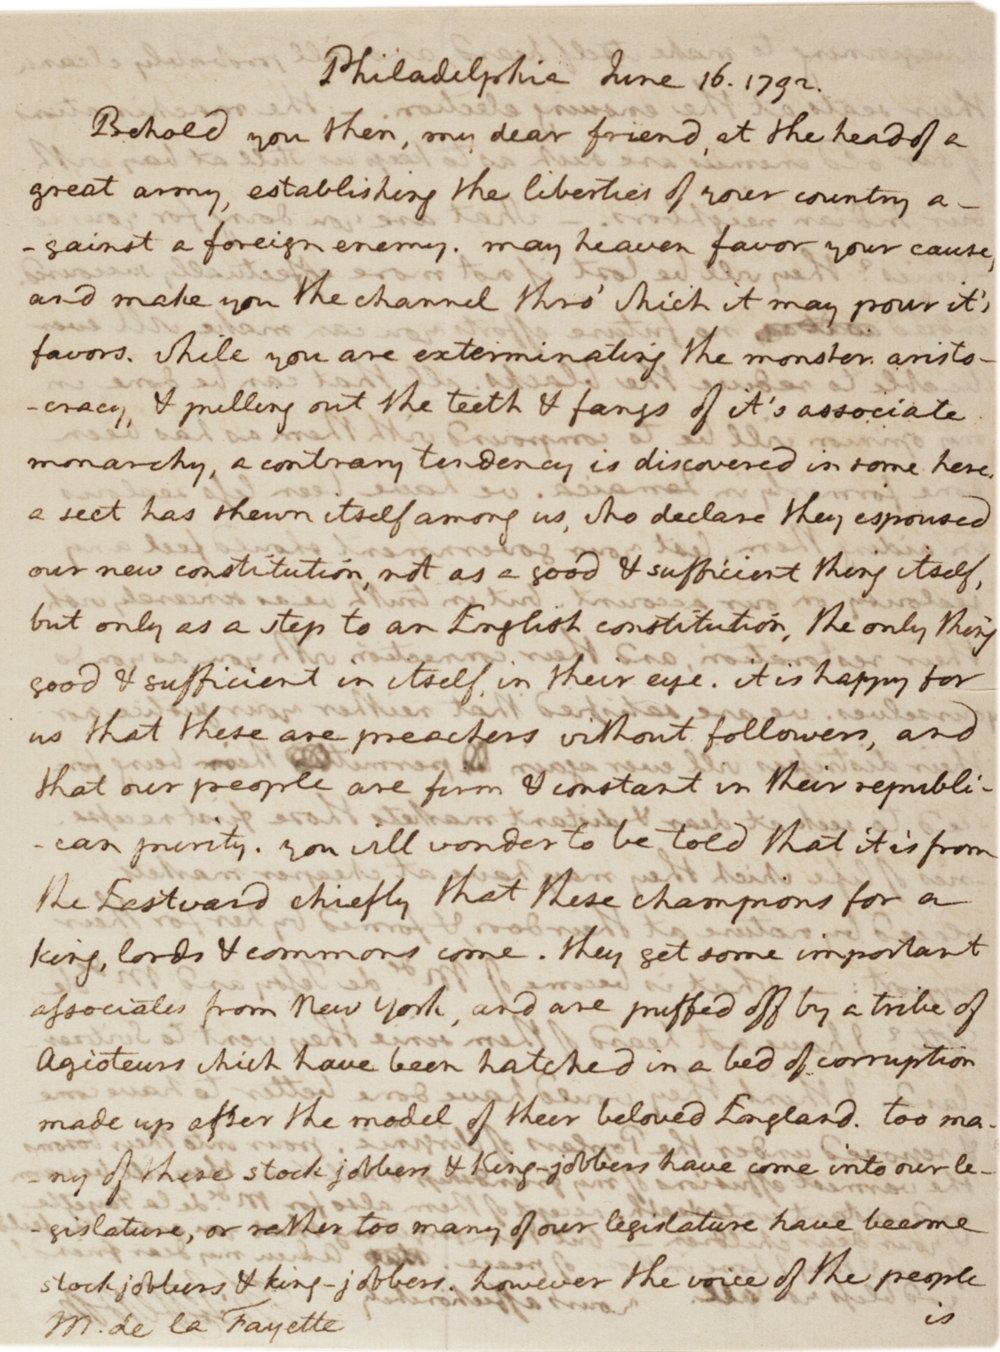 Philadelphia June 16. 1792.
Behold you then, my dear friend, at the head of a
great army, establishing the liberties of your country a-
-gainst a foreign enemy. may heaven favor your cause,
and make you the channel thro' which it may pour it's
favors. while you are exterminating the monster aristo-
-cracy, & pulling out the teeth & fangs of it's associate
monarchy, a contrary tendency is discovered in some here.
a sect has shewn itself among us, who declare they espoused
our new constitution, not as a good & sufficient thing itself,
but only as a step to an English constitution, the only thing
good & sufficient in itself, in their eye. it is happy for
us that these are preachers without followers, and
that our people are firm & constant in their republi-
-can purity. you will wonder to be told that it is from
the Eastward chiefly that these champions for a
king, lords & commons come. they get some important
associates from New York, and are puffed off by a tribe of
Agioteurs which have been hatched in a bed of corruption
made up after the model of their beloved England. too ma-
-ny of these stock jobbers & King-jobbers have come into our le-
-gislature, or rather too many of our legislature have become
stock jobbers & king-jobbers. however the voice of the people
M. de la Fayette
is